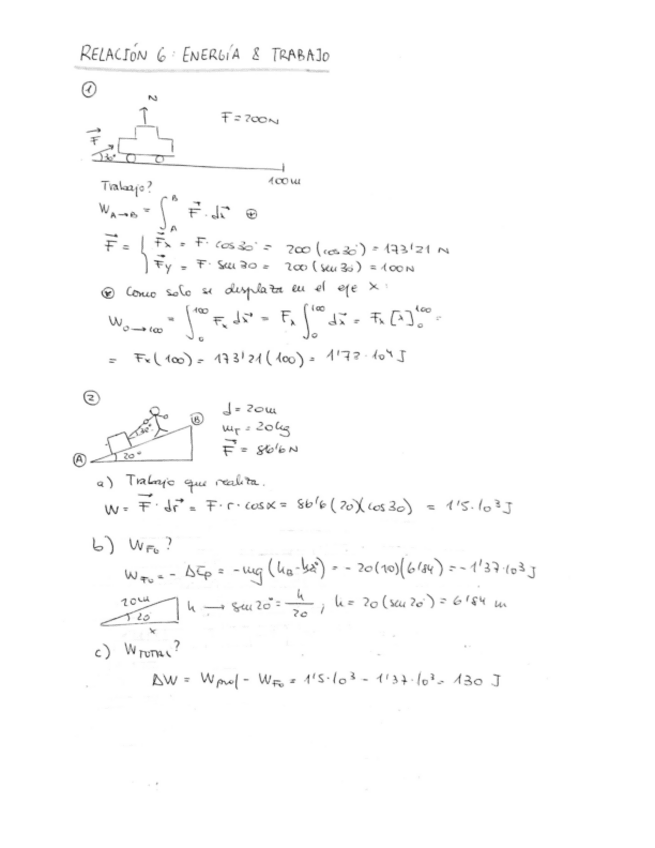 RELACIÓN 6: ENERGÍA & TRABAJO
①
N
F = 200N
F⃗
30°
100m
Trabajo?
W_{A→B} = ∫_A^B F⃗ · dr⃗ ⊛
F⃗ = { F⃗x = F · cos 30° = 200 (cos 30°) = 173'21 N
F⃗y = F · sen 30 = 200 (sen 30°) = 100N
⊛ Como solo se desplaza en el eje x:
W_{0→100} = ∫_0^100 Fx dx⃗ = Fx ∫_0^100 dx⃗ = Fx [x]_0^100 =
= Fx (100) = 173'21 (100) = 1'72 · 10⁴ J
②
d = 20m
m_T = 20kg
F⃗ = 86'6N
B
A
30°
20°
a) Trabajo que realiza.
W = F⃗ · dr⃗ = F · r · cos α = 86'6 (20) (cos 30) = 1'5 · 10³ J
b) W_{Fg}?
W_{Fg} = - ΔEp = - mg (h_B - h_A) = - 20 (10) (6'84) = - 1'37 · 10³ J
20m
20
x
h → sen 20° = h/20 ; h = 20 (sen 20°) = 6'84 m
c) W_{TOTAL}?
ΔW = W_{prof} - W_{Fg} = 1'5 · 10³ - 1'37 · 10³ = 130 J